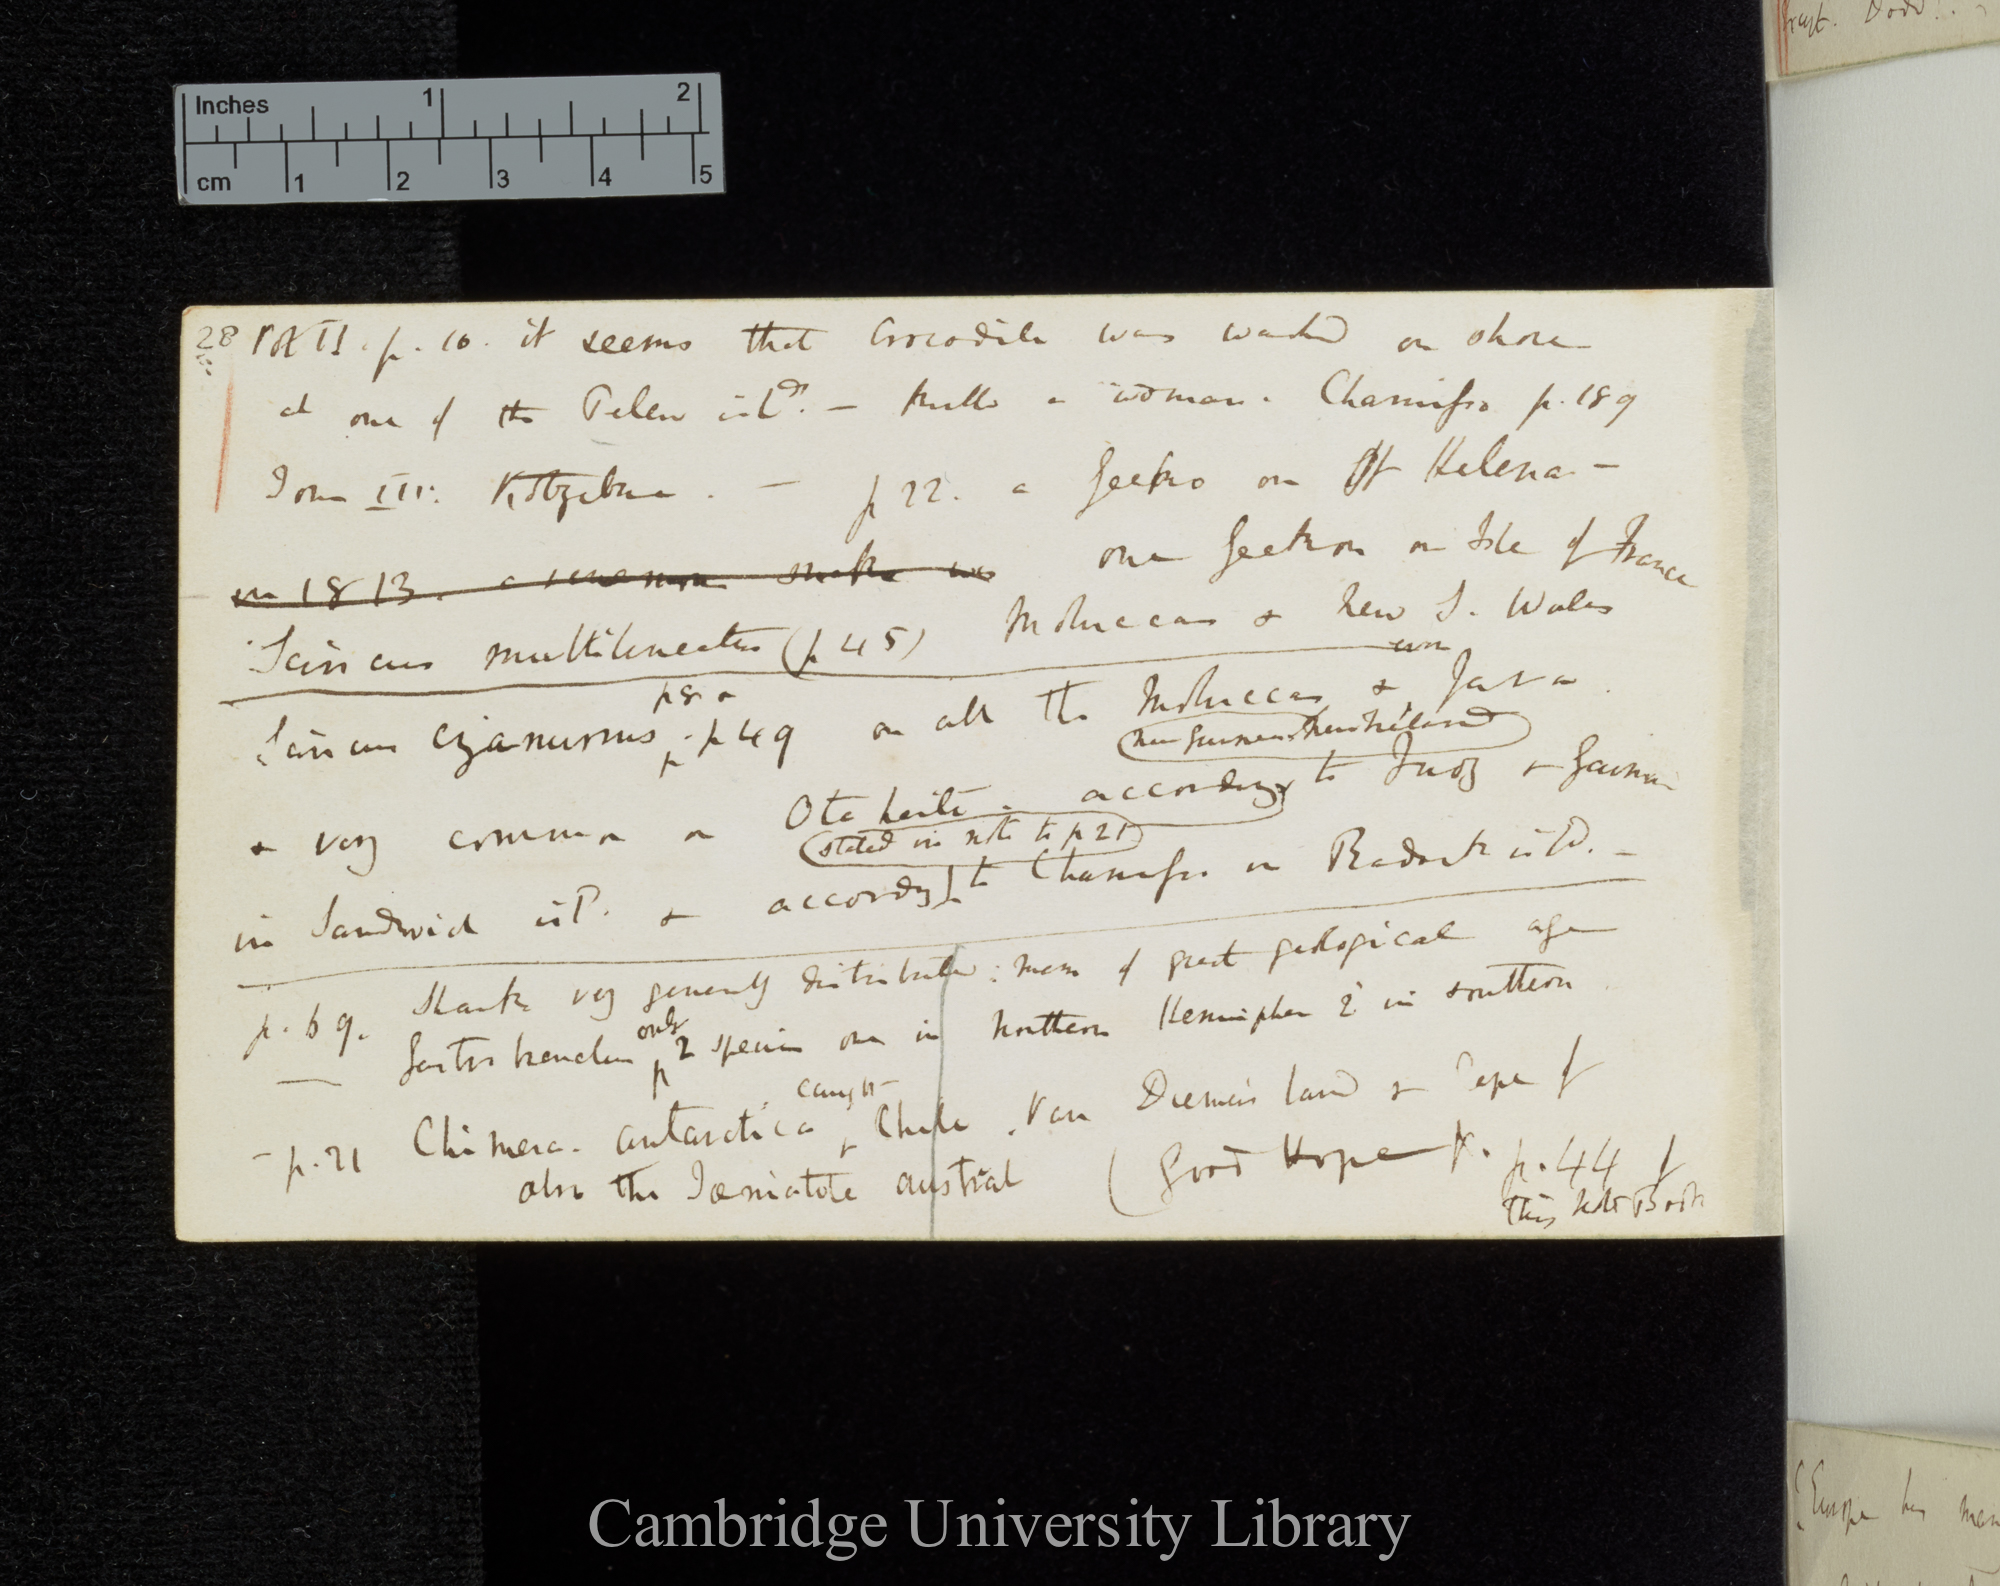 Inches 1 2
cm 1 2 3 4 5
rapt. Dodo
28 Vol II. p. 10. it seems that Crocodile was washed on shore
at one of the Pelew isld. — killed a woman. Chamisso p. 189
Tom III. Kotzebue. — p 22. a Gecko on St Helena —
in 1813. a venemous snake was one Gecko on Isle of France
Scincus multilineatus (p 45) Moluccas & New S. Wales
Scincus cyanurus p 49 on all the Moluccas & Java
New Guinea New Ireland
& very common on Otaheite. according to Quoy & Gaimard
stated in note to p 21
in Sandwich isld. & according to Chamisso in Radack isld. —
p. 69. Sharks very generally distributed: mem of great geological age
only
Gastrobranchus 2 species one in northern Hemisphere 2d in southern
caught
— p. 71 Chimera. antarctica & Chile, Van Diemen's land & Cape of
Good Hope p. 44 of
also the Tæniatole austral
this Note Book
Europe has man
Cambridge University Library